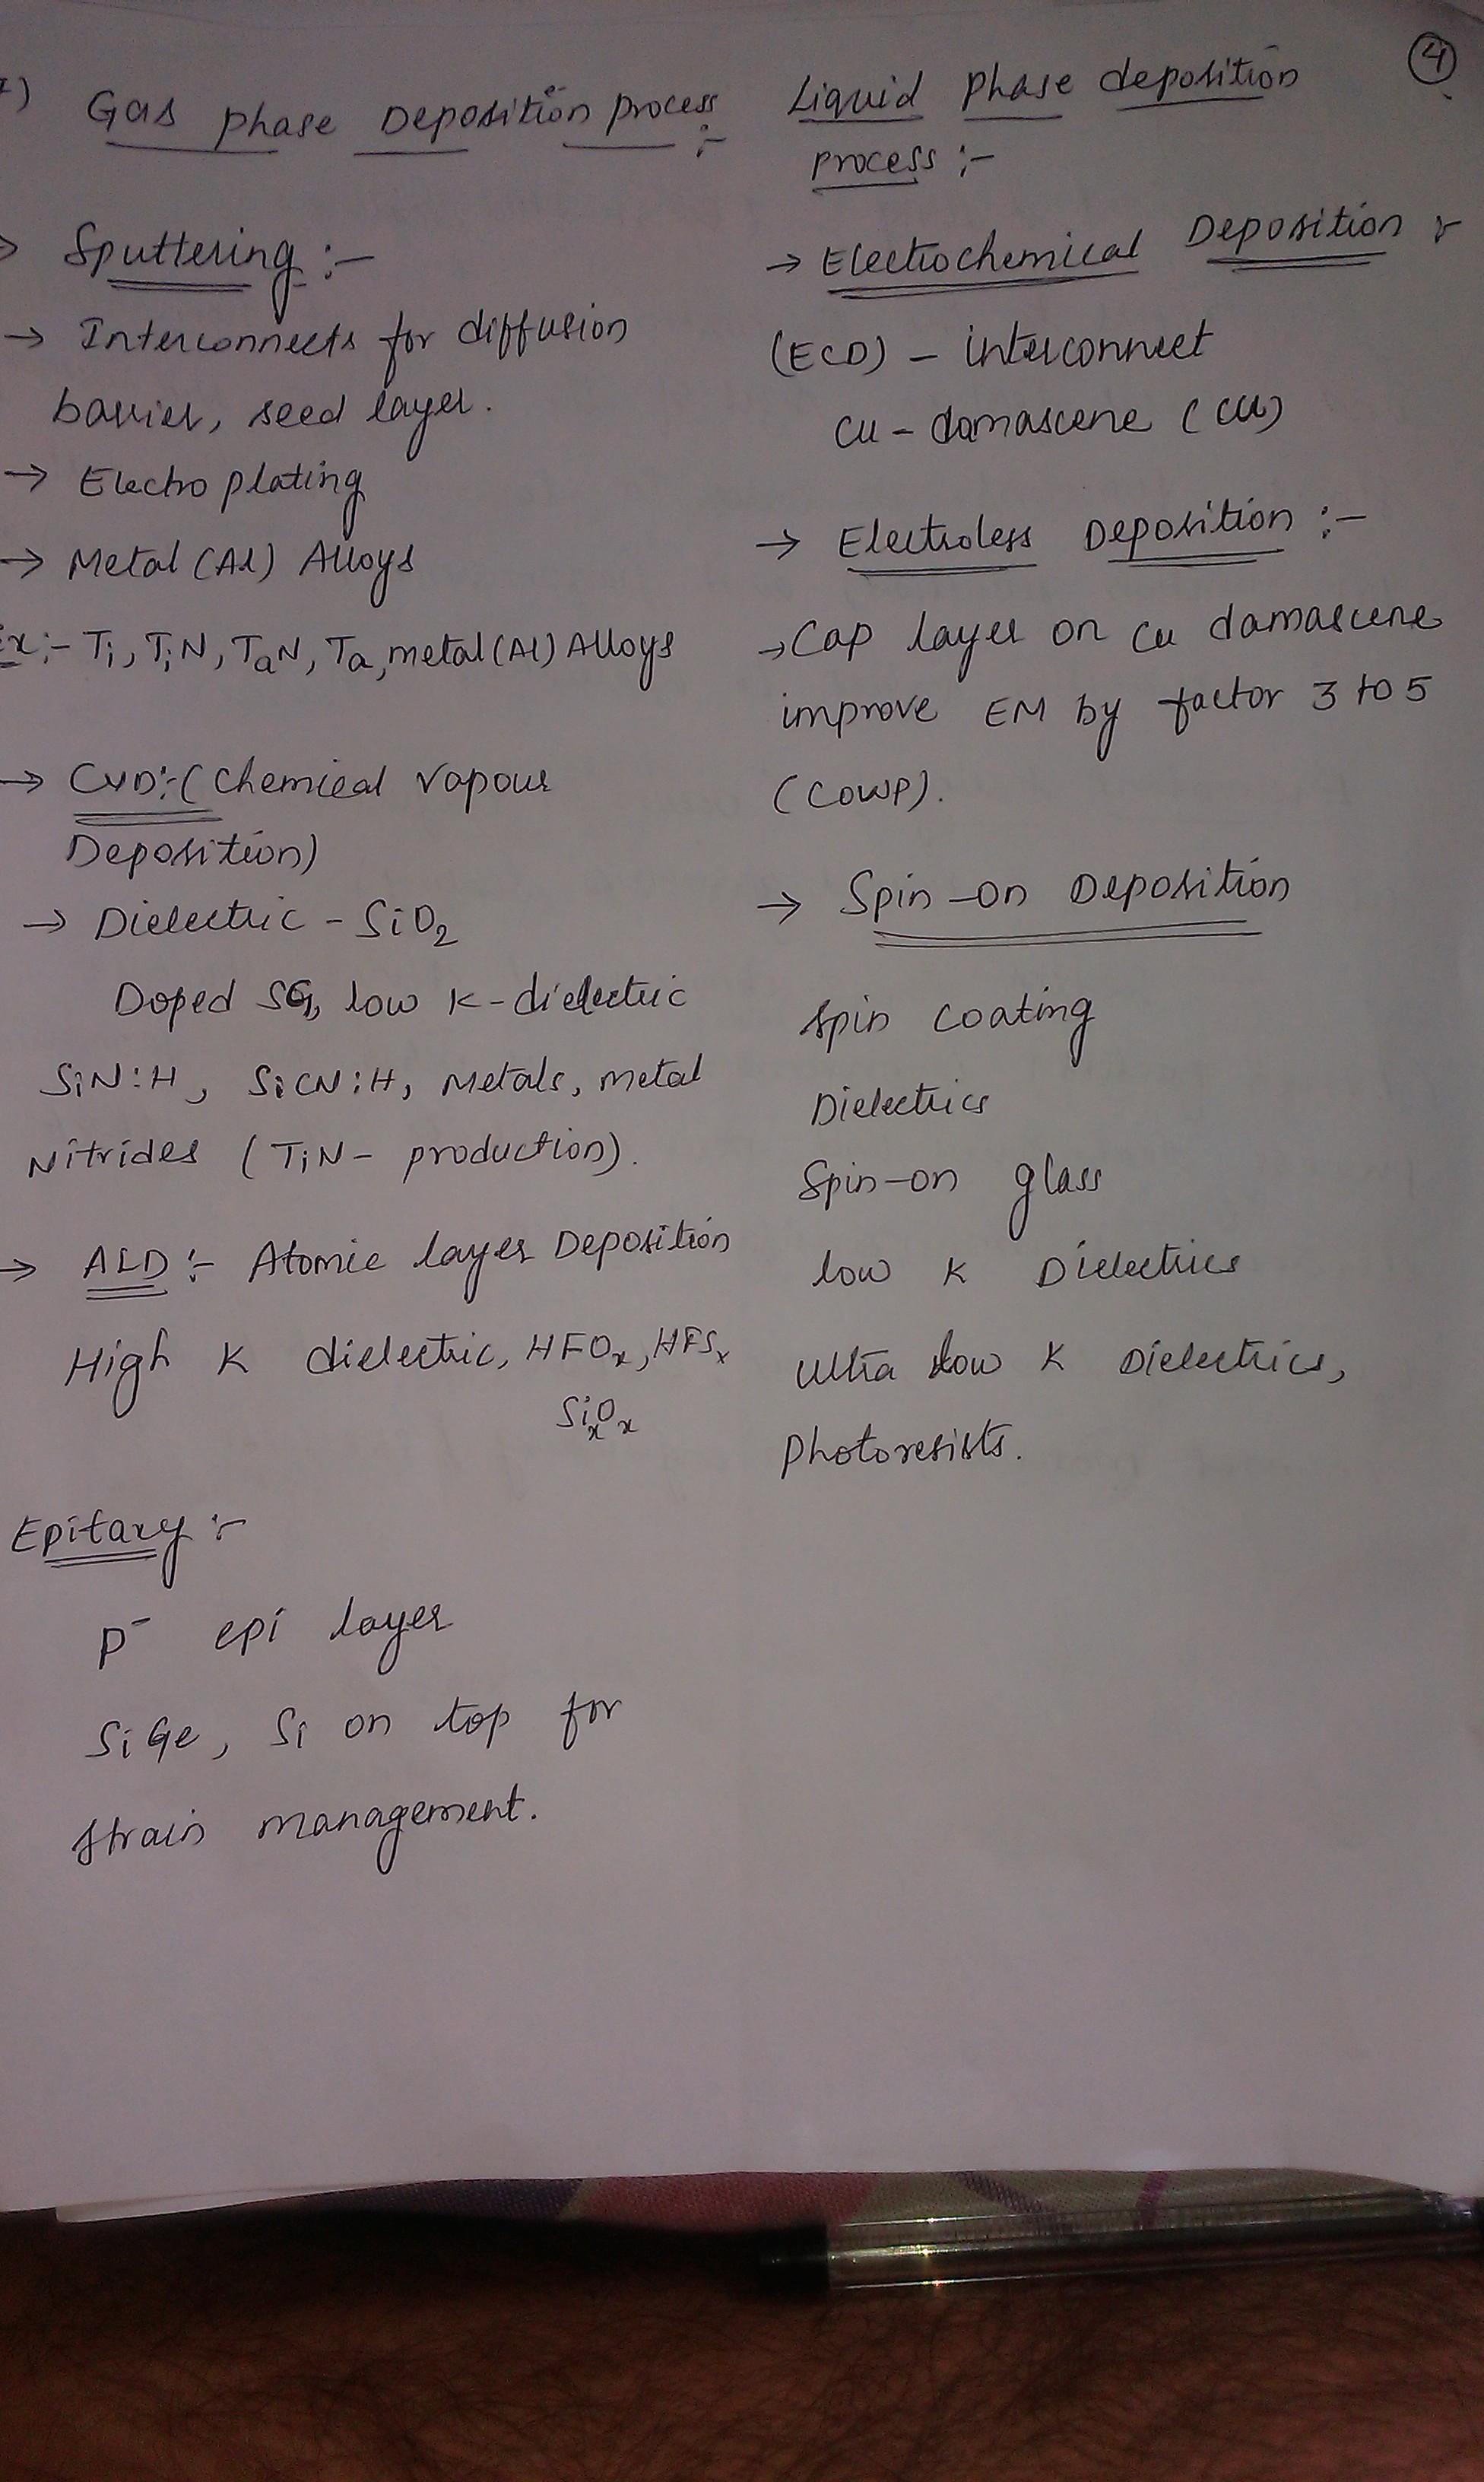 4
Gas phase Deposition process :-
Sputtering :-
→ Interconnects for diffusion
barrier, seed layer.
→ Electro plating
→ Metal (Al) Alloys
Ex:- Ti, TiN, TaN, Ta, metal (Al) Alloys
→ CVD:- (Chemical vapour
Deposition)
→ Dielectric - SiO2
Doped SG, low K-dielectric
SiN:H, SiCN:H, Metals, metal
Nitrides (TiN- production).
→ ALD :- Atomic layer Deposition
High K dielectric, HFOx, HFSx
SixOx
Epitaxy :-
P- epi layer
SiGe, Si on top for
strain management.
Liquid Phase deposition
process :-
→ Electrochemical Deposition
(ECD) - interconnect
Cu - damascene (Cu)
→ Electroless Deposition :-
→ Cap layer on Cu damascene
improve EM by factor 3 to 5
(COWP).
→ Spin-on Deposition
Spin coating
Dielectrics
Spin-on glass
low K Dielectrics
Ultra low K Dielectrics,
photoresists.